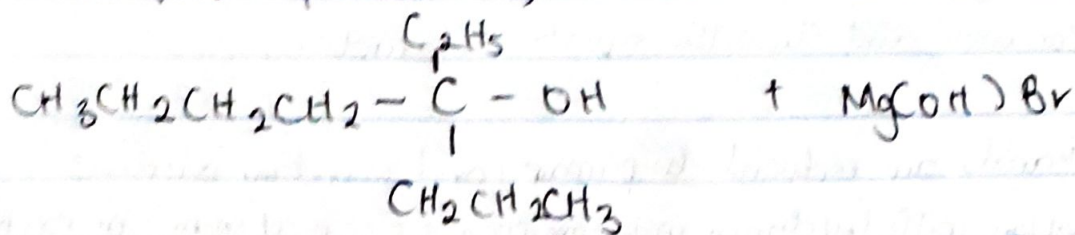 C2H5
CH3CH2CH2CH2 - C - OH + Mg(OH)Br
CH2CH2CH3